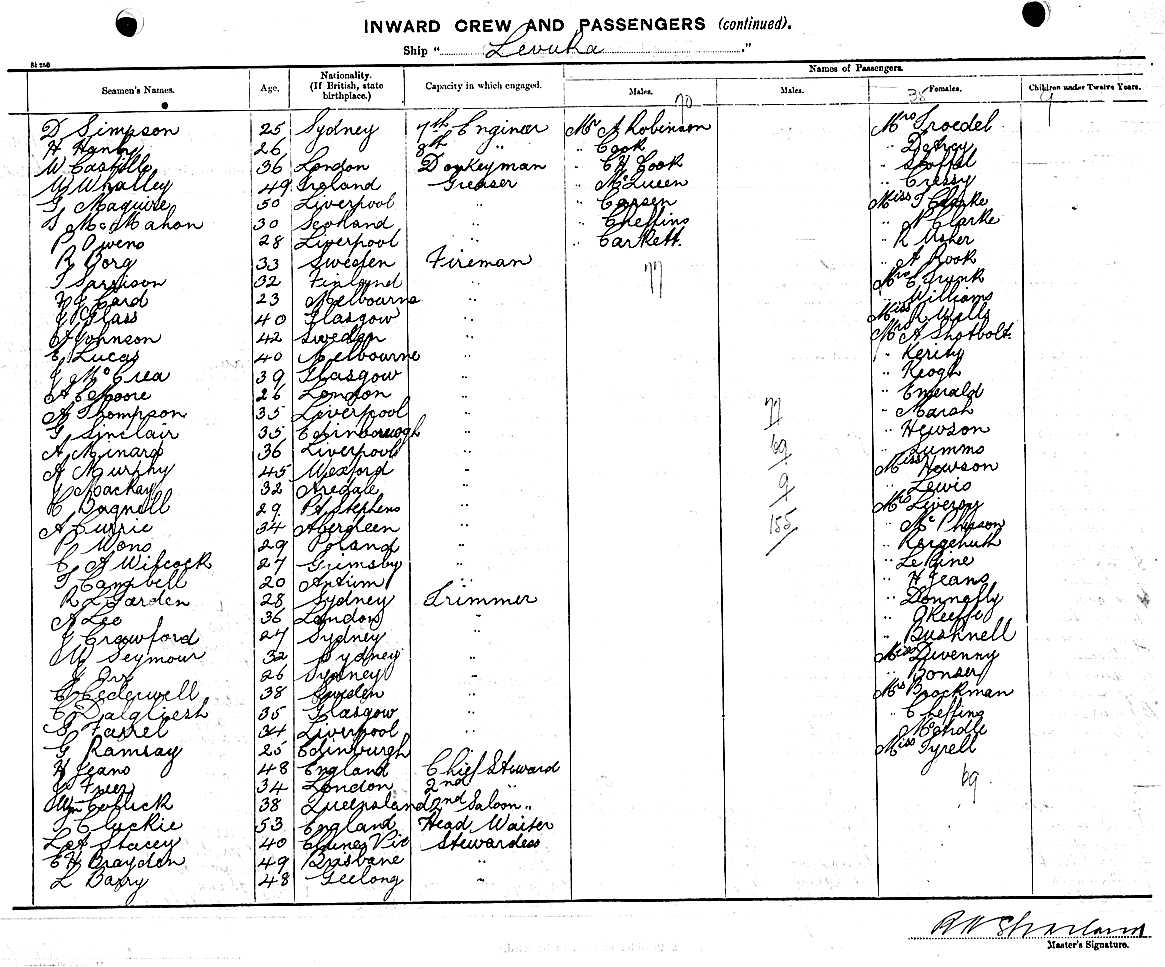 INWARD CREW AND PASSENGERS (continued).
Ship "Levuka"
Names of Passengers.
Seamen's Names. Age. Nationality. (If British, state birthplace.) Capacity in which engaged. Males. Males. Females. Children under Twelve Years.
70 38 9
D Simpson 25 Sydney 7th Engineer Mr A Robinson Mrs Troedel
H 26 " 8th " " Cook "
W Costello 36 London Donkeyman " C H Cook "
W Whalley 49 Ireland Greaser " McQueen " Cressy
G Maguire 50 Liverpool " " Carsen Miss Clarke
McMahon 30 Scotland " " Cheffins " Clarke
P Owens 28 Liverpool " " Carkett " R Usher
R Borg 33 Sweden Fireman " A Rook
Sarrison 32 Finland " 77 Mrs C
Card 23 Melbourne " " Williams
Glass 40 Glasgow " Miss R Wells
Johnson 42 Sweden " Mrs A Shotbolt
E Lucas 40 Melbourne " " Kerity
J McCrea 39 Glasgow " " Keogh
A E Moore 26 London " " Emerald
A Thompson 35 Liverpool " 77 " Marsh
G Sinclair 35 Edinborough " " Hewson
A Minard 36 Liverpool " 69 "
A Murphy 45 Wexford " Miss Hewson
J Mackay 32 " 9 " Lewis
C Bagnell 29 Pt Stephens " Mrs
A Currie 34 Aberdeen " 155 " McPherson
P Wono 29 Poland " "
C A Wilcock 27 Grimsby " " Le
Campbell 20 " " H Jeans
R L Garden 28 Sydney Trimmer " Donnally
A Leo 36 London " " OKeeffe
J Crawford 27 Sydney " " Bushnell
W Seymour 32 Sydney " Miss Divenny
J 26 Sydney " " Bonser
C Cederwell 38 Sweden " Mrs Brockman
C Dalgliesh 35 Glasgow " " Cheffins
Farrel 34 Liverpool " " McArdle
G Ramsay 25 Edinburgh " Miss Tyrell
H Jeans 48 England Chief Steward
34 London 2nd " 69
Wm 38 Queensland 2nd Saloon "
Cluckie 53 England Head Waiter
Stacey 40 Clunes Vic Stewardess
E H Brayden 49 Brisbane "
L Barry 48 Geelong "
Master's Signature.